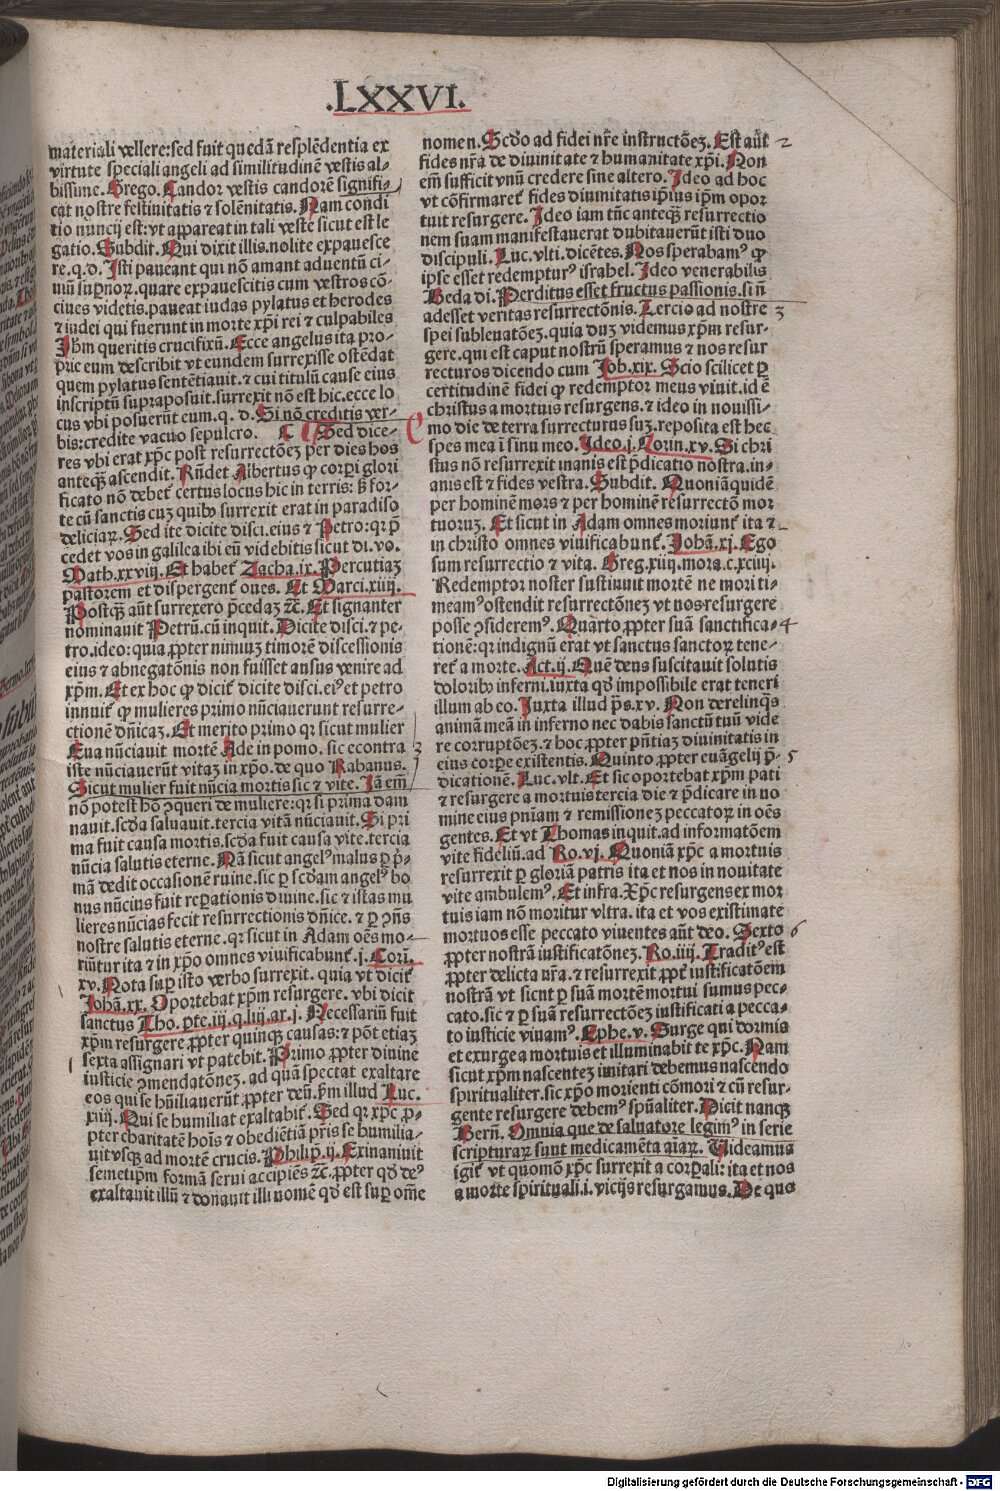 .LXXVI.
materiali vellere:sed fuit quedā resplēdentia ex
virtute speciali angeli ad similitudinē vestis al-
bissime. Grego. Candor vestis candorē signifi-
cat nostre festinitatis ⁊ solēnitatis. Nam condi
tio nuncij est: vt appareat in tali veste sicut est le
gatio. Subdit. Qui dixit illis. nolite expauesce
re. q. d. Isti paueant qui nō amant aduentū ci-
uiū supnoꝝ. quare expauescitis cum vestros cō-
ciues videtis. paueat iudas pylatus et herodes
⁊ iudei qui fuerunt in morte xp̄i rei ⁊ culpabiles
Ihm queritis crucifixū. Ecce angelus ita pro-
prie eum describit vt eundem surrexisse ostēdat
quem pylatus sentētiauit. ⁊ cui titulū cause eius
inscriptū supraposuit. surrexit nō est hic. ecce lo
cus vbi posuerūt eum. q. d. Si nō creditis ver-
bis: credite vacuo sepulcro. C Sed dice-
res vbi erat xp̄c post resurrectōeꝫ per dies hos
anteqꝫ ascendit. Rn̄det Albertus ꝙ corpi glori
ficato nō debet certus locus hic in terris: sꝫ for-
te cū sanctis cuꝫ quibꝫ surrexit erat in paradiso
deliciaꝝ. Sed ite dicite disci. eius ⁊ Petro: qꝛ p̄
cedet vos in galilea ibi eū videbitis sicut di. vo.
Math. xxviij. Et habet Zacha. ix. Percutiaꝫ
pastorem et dispergent oues. Et Marci. xiiij.
Postqꝫ aūt surrexero p̄cedaꝫ ⁊c̄. Et signanter
nominauit Petrū. cū inquit. Dicite disci. ⁊ pe-
tro. ideo: quia ꝓpter nimiuꝫ timorē discessionis
eius ⁊ abnegatōnis non fuisset ausus venire ad
xp̄m. Et ex hoc ꝙ dicit dicite disci. eiꝰ et petro
innuit ꝙ mulieres primo nūciauerunt resurre-
ctionē dn̄icaꝫ. Et merito primo qꝛ sicut mulier
Eua nūciauit mortē Ade in pomo. sic econtra
iste nūciauerūt vitaꝫ in xp̄o. de quo Rabanus.
Sicut mulier fuit nūcia mortis sic ⁊ vite. Iā em̄
nō potest hō ↄqueri de muliere: qꝛ si prima dam
nauit. scda saluauit. tercia vitā nūciauit. Si pri
ma fuit causa mortis. scda fuit causa vite. tercia
nūcia salutis eterne. Nā sicut angelꝰ malus ꝑ p̄-
mā dedit occasionē ruine. sic ꝑ scdam angelꝰ bo
nus nūcius fuit repationis diuine. sic ⁊ istas mu
lieres nūcias fecit resurrectionis dn̄ice. ⁊ ꝑ ↄn̄s
nostre salutis eterne. qꝛ sicut in Adam oēs mo-
riūtur ita ⁊ in xp̄o omnes viuificabunt. j. Cori.
xv. Nota sup isto verbo surrexit. quia vt dicit
Johā. xx. Oportebat xp̄m resurgere. vbi dicit
sanctus Tho. pte. iij. q. liij. ar. j. Necessariū fuit
xp̄m resurgere ꝓpter quinqꝫ causas: ⁊ pōt etiaꝫ
sexta assignari vt patebit. Primo ꝓpter diuine
iusticie ↄmendatōneꝫ. ad quā spectat exaltare
eos qui se hūiliauerūt ꝓpter deū. p̄m illud Luc.
xiiij. Qui se humiliat exaltabit. Sed qꝛ xp̄c ꝓ-
pter charitatē hoīs ⁊ obediētiā pr̄is se humilia-
uit vsqꝫ ad mortē crucis. Philip̄. ij. Exinaniuit
semetip̄m formā serui accipiēs ⁊c̄. ꝓpter qd deꝰ
exaltauit illū ⁊ donauit illi nomē qd est sup om̄e
nomen. Scdo ad fidei nr̄e instructōeꝫ. Est aūt 2
fides nr̄a de diuinitate ⁊ humanitate xp̄i. Non
em̄ sufficit vnū credere sine altero. Ideo ad hoc
vt cōfirmaret fides diuinitatis ip̄ius ip̄m opor
tuit resurgere. Ideo iam tūc anteqꝫ resurrectio
nem suam manifestauerat dubitauerūt isti duo
discipuli. Luc. vlti. dicētes. Nos sperabamꝰ ꝙ
ipse esset redempturꝰ israhel. Ideo venerabilis
Beda di. Perditus esset fructus passionis. si n̄
adesset veritas resurrectōnis. Tercio ad nostre 3
spei subleuatōeꝫ. quia duꝫ videmus xp̄m resur-
gere. qui est caput nostrū speramus ⁊ nos resur
recturos dicendo cum Job. xix. Scio scilicet ꝑ
certitudinē fidei ꝙ redemptor meus viuit. id ē
christus a mortuis resurgens. ⁊ ideo in nouissi-
mo die de terra surrecturus suꝫ. reposita est hec
spes mea ī sinu meo. Ideo. j. Corin. xv. Si chri
stus nō resurrexit inanis est p̄dicatio nostra. in-
anis est ⁊ fides vestra. Subdit. Quoniā quidē
per hominē mors ⁊ per hominē resurrectō mor
tuoruꝫ. Et sicut in Adam omnes moriunt ita ⁊
in christo omnes viuificabunt. Johā. xj. Ego
sum resurrectio ⁊ vita. Greg. xiiij. mora. c. xciij.
Redemptor noster sustinuit mortē ne mori ti-
meamꝰ ostendit resurrectōneꝫ vt nos resurgere
posse ↄsideremꝰ. Quarto ꝓpter suā sanctifica- 4
tionē: qꝛ indignū erat vt sanctus sanctoꝝ tene-
ret a morte. Act. ij. Quē deus suscitauit solutis
doloribꝫ inferni. iuxta qd impossibile erat teneri
illum ab eo. Juxta illud ps. xv. Non derelinqs
animā meā in inferno nec dabis sanctū tuū vide
re corruptōeꝫ. ⁊ hoc ꝓpter pn̄tiaꝫ diuinitatis in
eius corpe existentis. Quinto ꝓpter euāgelij p̄- 5
dicationē. Luc. vlt. Et sic oportebat xp̄m pati
⁊ resurgere a mortuis tercia die ⁊ p̄dicare in no
mine eius pn̄iam ⁊ remissioneꝫ peccatoꝝ in oēs
gentes. Et vt Thomas inquit. ad informatōem
vite fideliū. ad Ro. vj. Quoniā xp̄c a mortuis
resurrexit ꝑ gloriā patris ita et nos in nouitate
vite ambulemꝰ. Et infra. Xp̄c resurgens ex mor
tuis iam nō moritur vltra. ita et vos existimate
mortuos esse peccato viuentes aūt deo. Sexto 6
ꝓpter nostrā iustificatōneꝫ. Ro. iiij. Traditꝰ est
ꝓpter delicta nr̄a. ⁊ resurrexit ꝓpt iustificatōem
nostrā vt sicut ꝑ suā mortē mortui sumus pec-
cato. sic ⁊ ꝑ suā resurrectōeꝫ iustificati a pecca-
to iusticie viuamꝰ. Ephe. v. Surge qui dormis
et exurge a mortuis et illuminabit te xp̄c. Nam
sicut xp̄m nascenteꝫ imitari debemus nascēdo
spiritualiter. sic xp̄o morienti cōmori ⁊ cū resur-
gente resurgere debemꝰ spūaliter. Dicit nanqꝫ
Bern̄. Omnia que de saluatore legimꝰ in serie
scripturaꝝ sunt medicamēta aīaꝝ. Videamus
igit vt quomō xp̄c surrexit a corpali: ita et nos
a morte spirituali. i. vicijs resurgamus. De quo
Digitalisierung gefördert durch die Deutsche Forschungsgemeinschaft - DFG